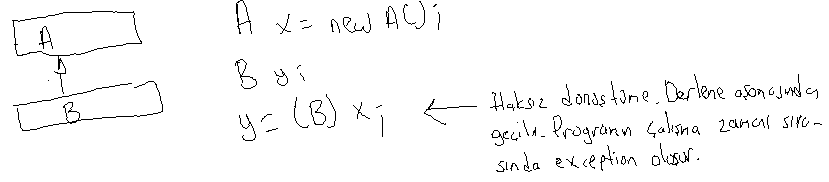 A
B
A x = new A();
B y;
y = (B) x;
Haksız dönüştürme. Derleme aşamasından
geçilir. Programın çalışma zamanı sıra-
sında exception oluşur.